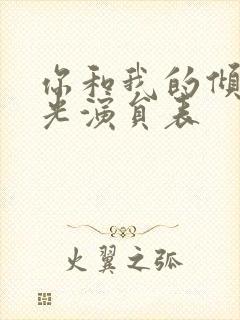 你和我的倾
光演员表
火翼之弧